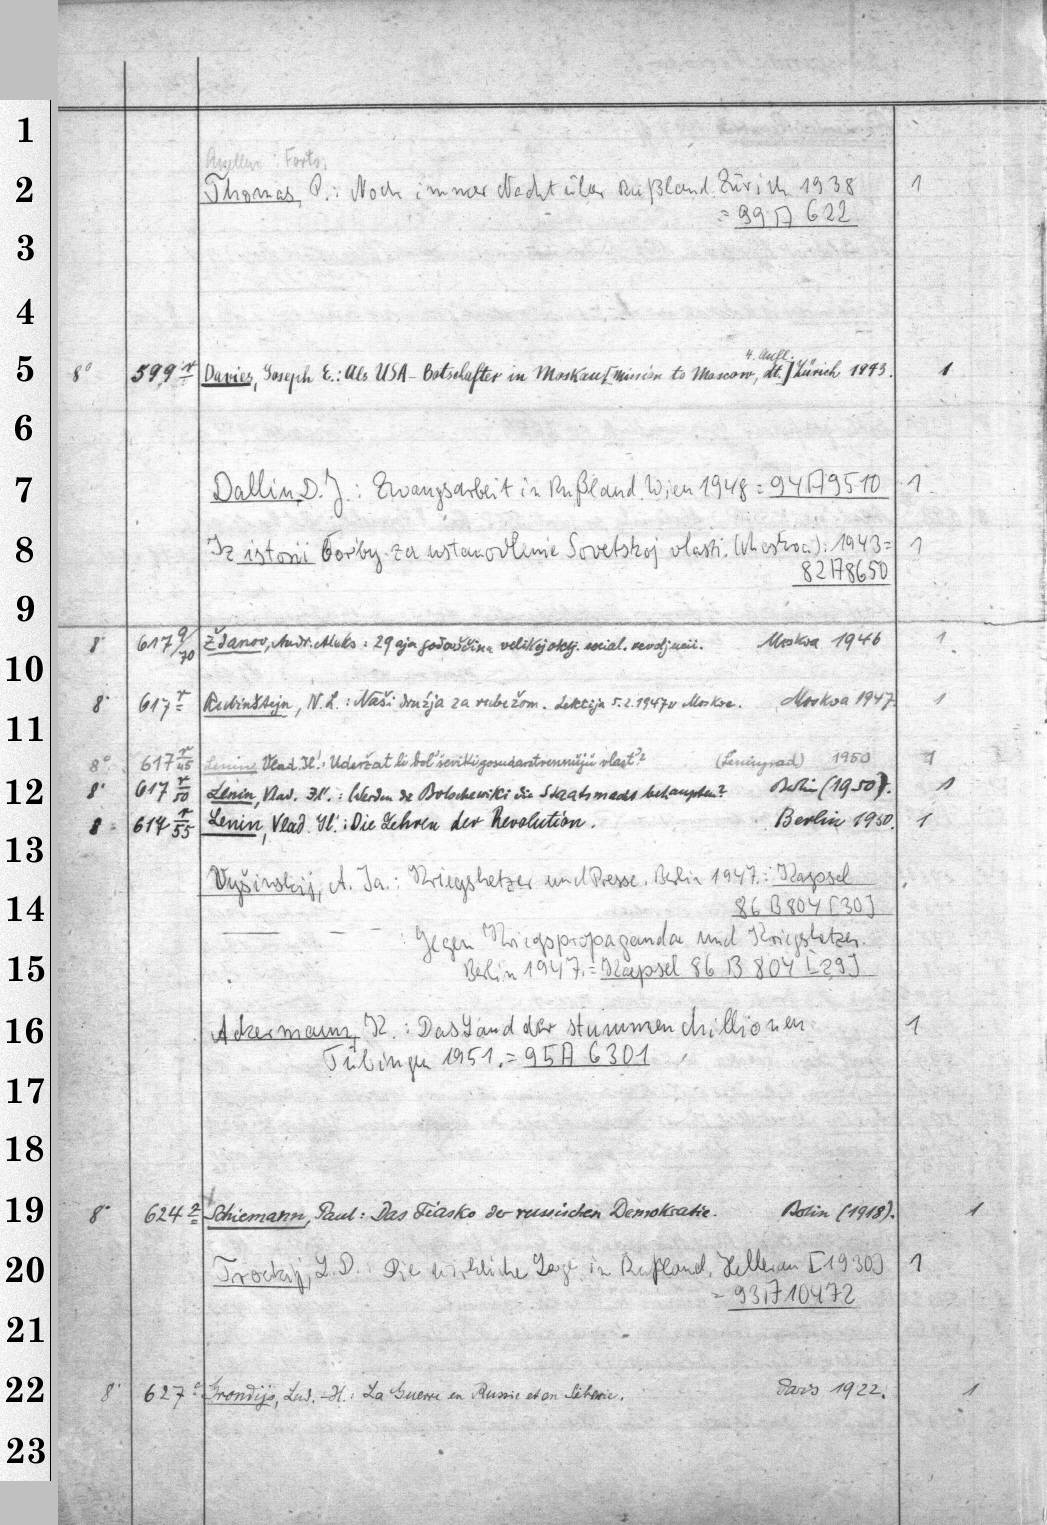 1
2
Thomas, P.: Noch immer Nacht über Rußland. Zürich 1938 1
= 99 A 622
3
4
5 8° 599 r Davies, Joseph E.: Als USA-Botschafter in Moskau [Mission to Moscow, dt.] 4. Aufl. Zürich 1943. 1
6
7 Dallin, D. J.: Zwangsarbeit in Rußland. Wien 1948 = 94 A 9510 1
8 Iz istorii bor'by za ustanovlenie Sovetskoj vlasti. (Moskva): 1943 = 1
82 A 8650
9
8° 617 q/70 Ždanov, Andr. Aleks.: 29aja godovščina velikoj okt. social. revoljucii. Moskva 1946 1
10
8° 617 r Rubinštejn, N. L.: Naši druz'ja za rubežom. Lekcija 5.2.1947 v Moskve. Moskva 1947 1
11
8° 617 r/45 Lenin, Vlad. Il': Uderžat li bol'ševiki gosudarstvennuju vlast'? (Leningrad) 1950 1
12 8° 617 r/50 Lenin, Vlad. Il'.: Werden die Bolschewiki die Staatsmacht behaupten? Berlin (1950). 1
8° 617 r/55 Lenin, Vlad. Il.: Die Lehren der Revolution. Berlin 1950. 1
13
Vyšinskij, A. Ja.: Kriegshetzer und Presse. Berlin 1947.: Kapsel
14 86 B 804 [30]
— — : Gegen Kriegspropaganda und Kriegshetzer.
15 Berlin 1947. = Kapsel 86 B 804 [29]
16 Ackermann, K.: Das Land der stummen Millionen 1
Tübingen 1951. = 95 A 6301
17
18
19 8° 624 r Schiemann, Paul: Das Fiasko der russischen Demokratie. Berlin (1918). 1
20 Trockij, L. D.: Die wirkliche Lage in Rußland. Hellerau [1930] 1
= 93 A 10472
21
22 8° 627 Grondijs, Lud.-H.: La Guerre en Russie et en Sibérie. Paris 1922. 1
23